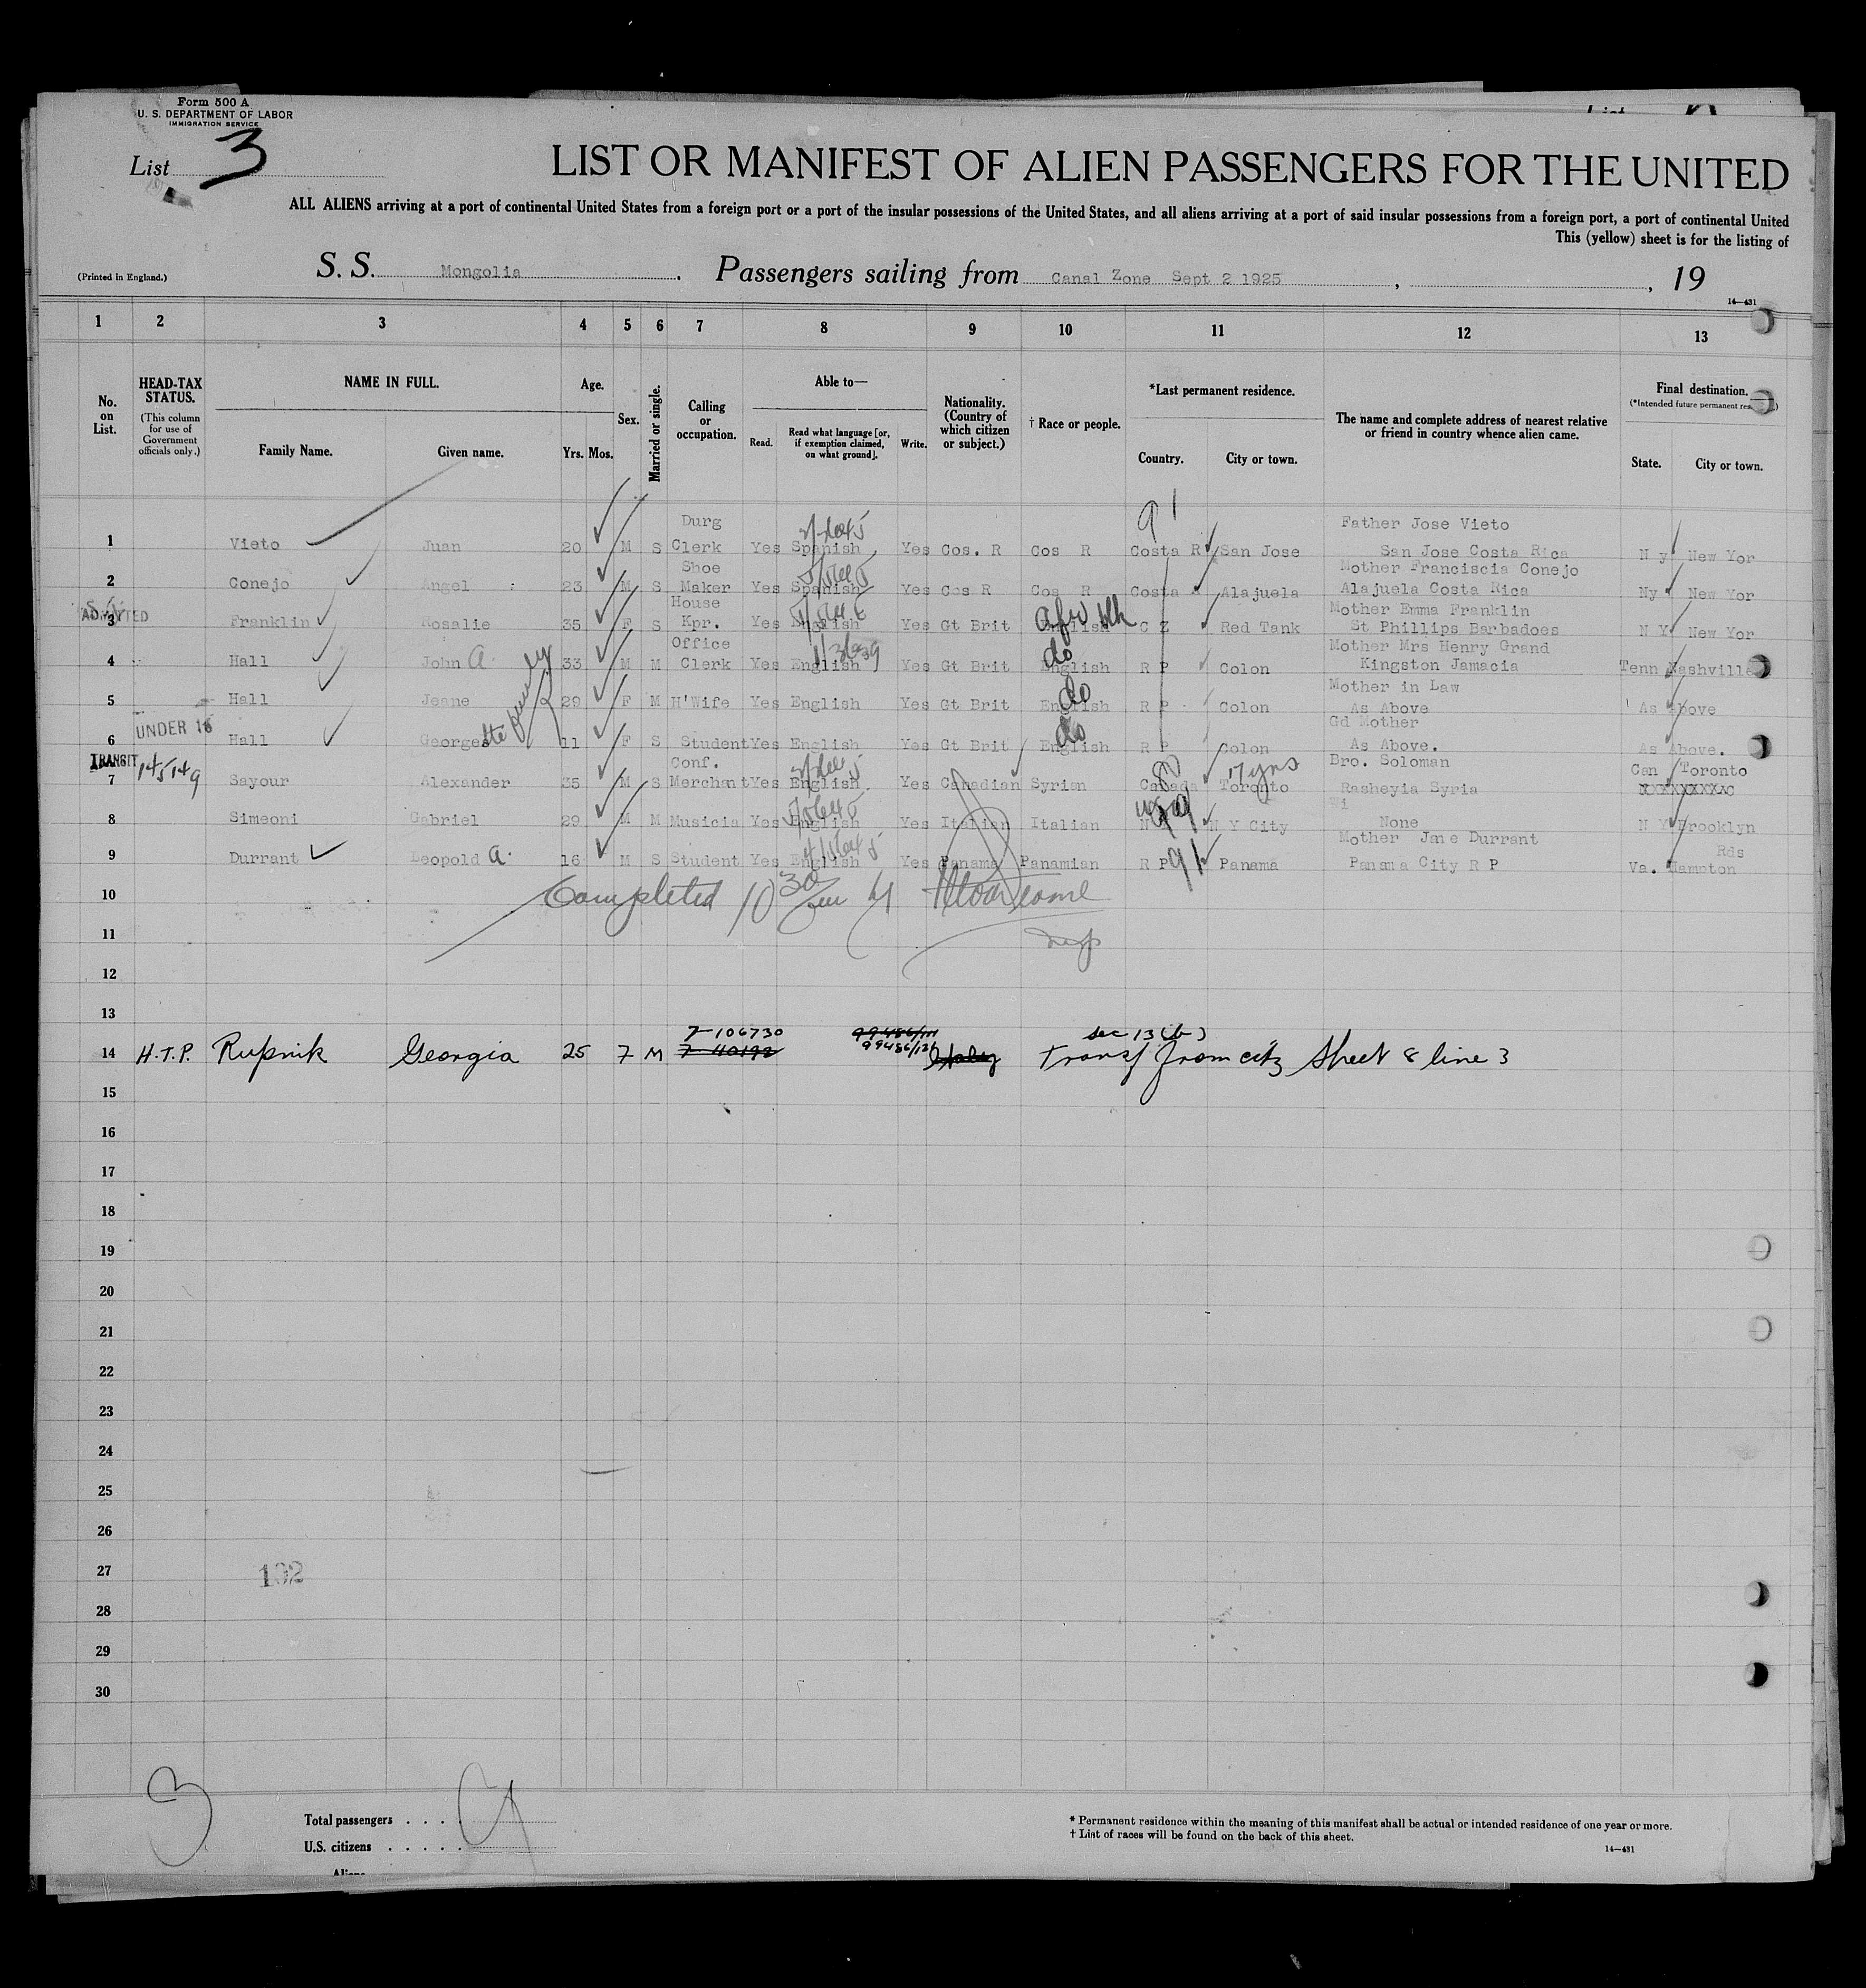 Form 500 A
U. S. DEPARTMENT OF LABOR
IMMIGRATION SERVICE
List 3
LIST OR MANIFEST OF ALIEN PASSENGERS FOR THE UNITED
ALL ALIENS arriving at a port of continental United States from a foreign port or a port of the insular possessions of the United States, and all aliens arriving at a port of said insular possessions from a foreign port, a port of continental United
This (yellow) sheet is for the listing of
(Printed in England.)
S. S. Mongolia. Passengers sailing from Canal Zone Sept 2 1925 , , 19
14—431
1 2 3 4 5 6 7 8 9 10 11 12 13
No. on List.
HEAD-TAX STATUS.
(This column for use of Government officials only.)
NAME IN FULL.
Family Name. Given name.
Age.
Yrs. Mos.
Sex.
Married or single.
Calling or occupation.
Able to—
Read. Read what language [or, if exemption claimed, on what ground]. Write.
Nationality. (Country of which citizen or subject.)
† Race or people.
*Last permanent residence.
Country. City or town.
The name and complete address of nearest relative or friend in country whence alien came.
Final destination.
(*Intended future permanent
State. City or town.
Durg Father Jose Vieto
1 Vieto Juan 20 M S Clerk Yes Spanish Yes Cos. R Cos R Costa R San Jose San Jose Costa Rica N y New Yor
Shoe Mother Franciscia Conejo
2 Conejo Angel 23 M S Maker Yes Spanish Yes Cos R Cos R Costa R Alajuela Alajuela Costa Rica Ny New Yor
ADMITTED House Mother Emma Franklin
3 Franklin Rosalie 35 F S Kpr. Yes English Yes Gt Brit English Afr blk C Z Red Tank St Phillips Barbadoes N Y New Yor
Office Mother Mrs Henry Grand
4 Hall John A 33 M M Clerk Yes English Yes Gt Brit English do R P Colon Kingston Jamacia Tenn Nashville
Mother in Law
5 Hall Jeane 29 F M H'Wife Yes English Yes Gt Brit English do R P Colon As Above As Above
UNDER 16 Gd Mother
6 Hall Georgette 11 F S Student Yes English Yes Gt Brit English do R P Colon As Above. As Above.
TRANSIT 145149 Conf. 17 yrs Bro. Soloman Can Toronto
7 Sayour Alexander 35 M S Merchant Yes English Yes Canadian Syrian Canada Toronto Rasheyia Syria
usa Wi
8 Simeoni Gabriel 29 M M Musicia Yes English Yes Italian Italian N Y N Y City None N Y Brooklyn
Mother Jane Durrant Rds
9 Durrant Leopold A. 16 M S Student Yes English Yes Panama Panamian R P 91 Panama Panama City R P Va. Hampton
10
Completed 10 30 am by
Insp
11
12
13
7-106730 99486/111 sec 13 (b)
14 H.T.P. Rupnik Georgia 25 7 M 7-40192 99486/126 Italy Transf from citz Sheet 8 line 3
15
16
17
18
19
20
21
22
23
24
25
26
27
102
28
29
30
3
Total passengers . . . . 9
U.S. citizens . . . . .
Aliens
* Permanent residence within the meaning of this manifest shall be actual or intended residence of one year or more.
† List of races will be found on the back of this sheet.
14—431